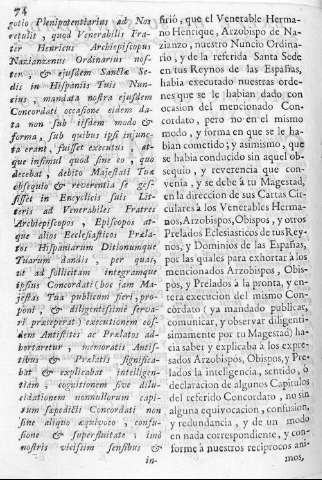 74
gotio Plenipotentiarius ad Nos
retulit, quod Venerabilis Fra-
ter Henricus Archiepiscopus
Nazianzenus Ordinarius nos-
ter, & ejusdem Sanctæ Se-
dis in Hispaniis Tuis Nun-
tius, mandata nostra ejusdem
Concordati occasione eidem da-
ta non sub iisdem modo &
forma, sub quibus ipsi injunc-
ta erant, fuisset executus, at-
que insimul quod sine eo, quo
decebat, debito Majestati Tuæ
obsequio & reverentia se ges-
sisset in Encyclicis suis Lit-
teris ad Venerabiles Fratres
Archiepiscopos, Episcopos at-
que alios Ecclesiasticos Præla-
tos Hispaniarum Ditionumque
Tuarum dandis, per quas,
ut ad sollicitam integramque
ipsius Concordati (hoc jam Ma-
jestas Tua publicum fieri, pro-
poni, & diligentissimè serva-
ri præceperat) executionem eos-
dem Antistites ac Prælatos ad-
hortaretur, memoratis Antis-
titibus & Prælatis significa-
bat & explicabat intelligen-
tiam, cognitionem sive dilu-
cidationem nonnullorum capi-
rum sæpedicti Concordati non
sine aliquo æquivoco, confu-
sione & superfluitate; imò
nostris vicissim sensibus &
in-
firió, que el Venerable Herma-
no Henrique, Arzobispo de Na-
zianzo, nuestro Nuncio Ordina-
rio, y de la referida Santa Sede
en tus Reynos de las Españas,
habia executado nuestras orde-
nes que se le habian dado con
ocasion del mencionado Con-
cordato, pero no en el mismo
modo, y forma en que se le ha-
bian cometido; y asimismo, que
se habia conducido sin aquel ob-
sequio, y reverencia que con-
venia, y se debe á tu Magestad,
en la direccion de sus Cartas Cir-
culares á los Venerables Herma-
nos, Arzobispos, Obispos, y otros
Prelados Eclesiasticos de tus Rey-
nos, y Dominios de las Españas,
por las quales para exhortar á los
mencionados Arzobispos, Obis-
pos, y Prelados á la pronta, y en-
tera execucion del mismo Con-
cordato (ya mandado publicar,
comunicar, y observar diligenti-
simamente por tu Magestad) ha-
cia saber y explicaba á los expre-
sados Arzobispos, Obispos, y Pre-
lados la inteligencia, sentido, ó
declaracion de algunos Capitulos
del referido Concordato, no sin
alguna equivocacion, confusion,
y redundancia, y de un modo
en nada correspondiente, y con-
forme à nuestros reciprocos ani-
mos,